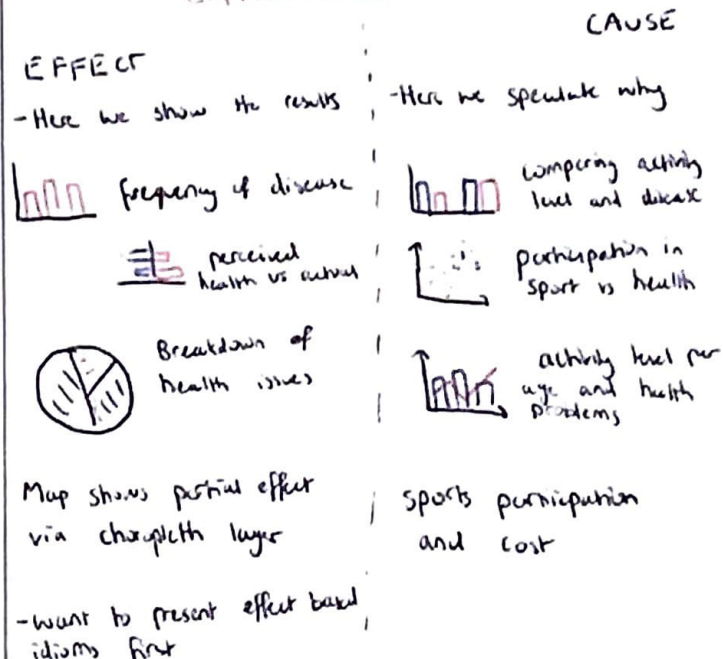 EFFECT
- Here we show the results
frequency of disease
perceived
health vs actual
Breakdown of
health issues
Map shows partial effect
via choropleth layer
- want to present effect based
idioms first
CAUSE
- Here we speculate why
comparing activity
level and disease
participation in
sport vs health
activity level per
age and health
problems
sports participation
and cost